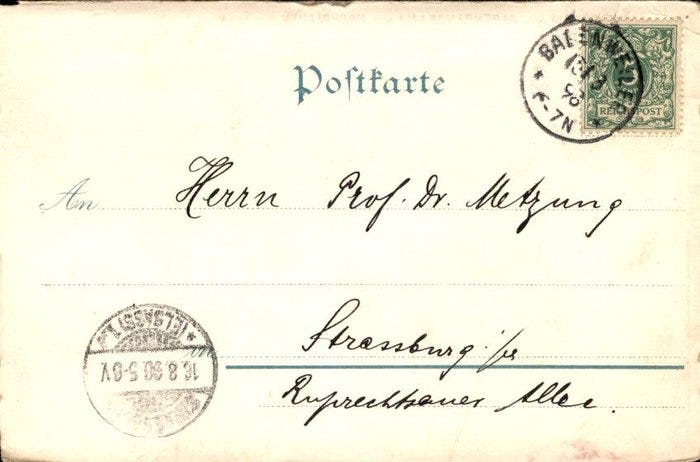 Postkarte
BADENWEILER
98
6-7N
5
REICHSPOST
An
Herrn Prof. Dr. Metzung
Strassburg i/E
Ruprechtsauer Allee.
(ELSASS)
16.8.98 5-6V